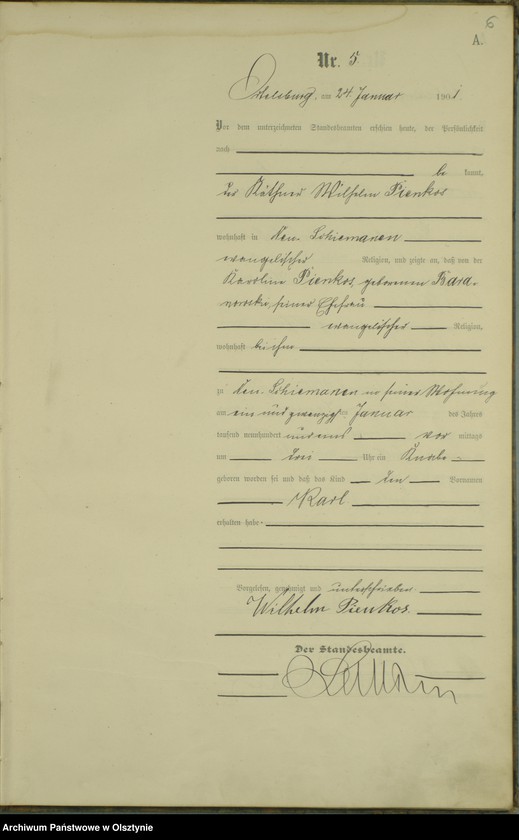 6
A.
Nr. 5
Ortelsburg, am 24 Januar 1901
Vor dem unterzeichneten Standesbeamten erschien heute, der Persönlichkeit
nach
be kannt,
der Käthner Wilhelm Pienkos
wohnhaft in Neu-Schiemanen
evangelischer Religion, und zeigte an, daß von der
Karoline Pienkos, geborenen Bara-
nowski, seiner Ehefrau
evangelischer Religion,
wohnhaft bei ihm
zu Neu-Schiemanen in seiner Wohnung
am ein und zwanzigsten Januar des Jahres
tausend neunhundert und eins vor mittags
um drei Uhr ein Knabe
geboren worden sei und daß das Kind den Vornamen
Karl
erhalten habe.
Vorgelesen, genehmigt und unterschrieben
Wilhelm Pienkos.
Der Standesbeamte.
Archiwum Państwowe w Olsztynie